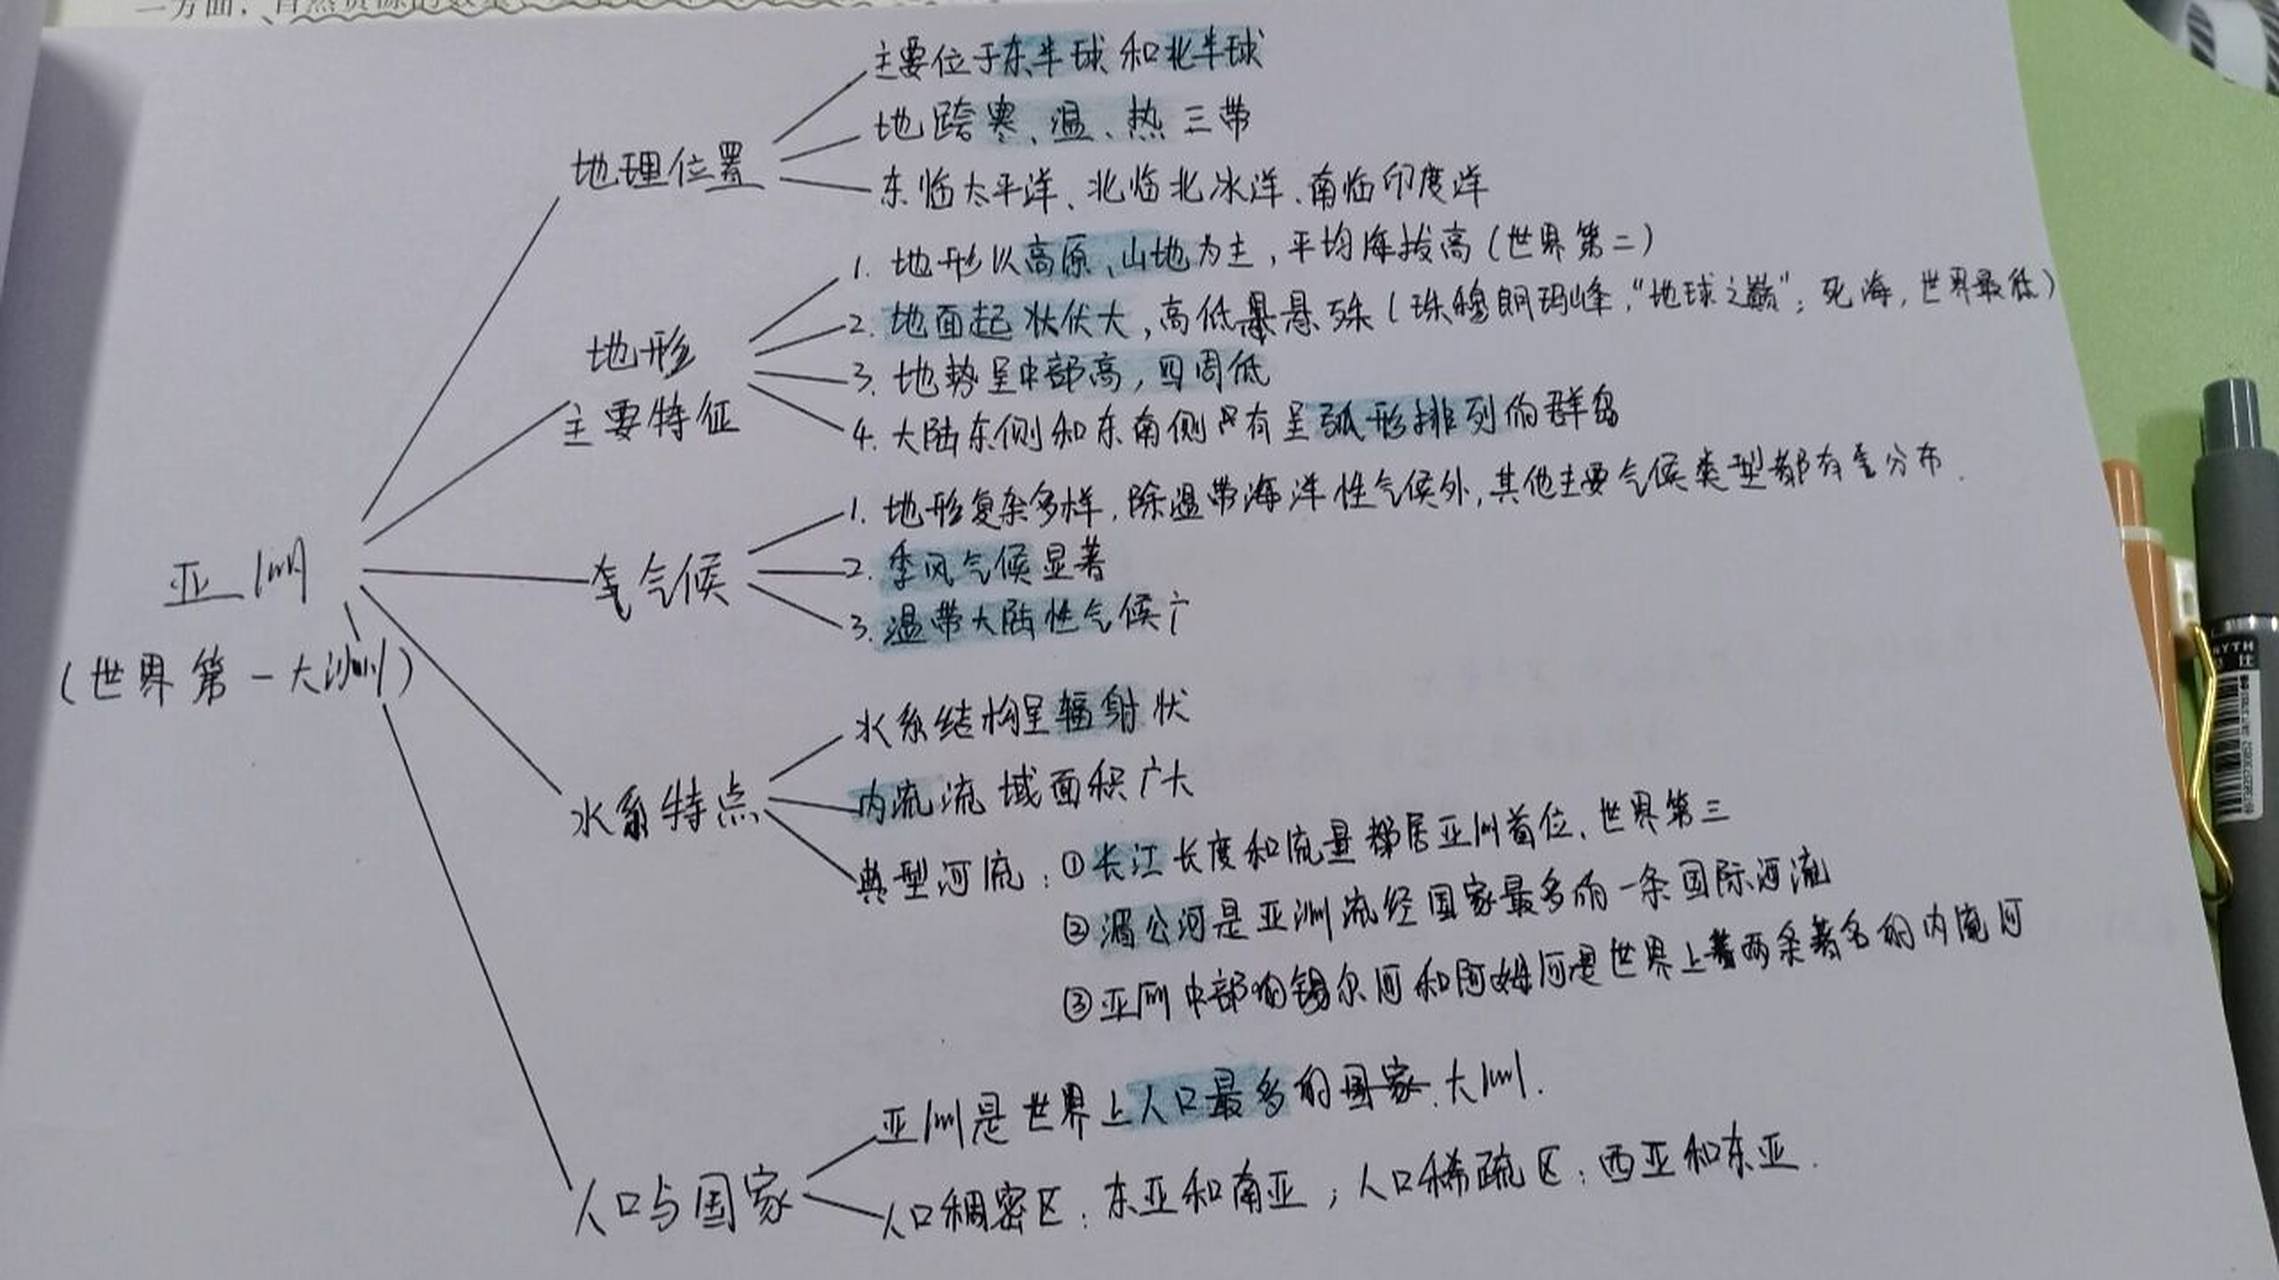 二方面,自然资源的数
主要位于东半球和北半球
地跨寒、温、热三带
地理位置
东临太平洋、北临北冰洋、南临印度洋
1. 地形以高原、山地为主,平均海拔高(世界第二)
2. 地面起状伏大,高低悬殊(珠穆朗玛峰,“地球之巅”;死海,世界最低)
地形
主要特征
3. 地势呈中部高,四周低
4. 大陆东侧和东南侧有呈弧形排列的群岛
1. 地形复杂多样,除温带海洋性气候外,其他主要气候类型都有分布.
气候
2. 季风气候显著
3. 温带大陆性气候广
亚洲
(世界第一大洲)
水系结构呈辐射状
水系特点
内流流域面积广大
典型河流:①长江长度和流量都居亚洲首位、世界第三
②湄公河是亚洲流经国家最多的一条国际河流
③亚洲中部的锡尔河和阿姆河是世界上两条著名的内流河
亚洲是世界上人口最多的国家.大洲.
人口与国家
人口稠密区:东亚和南亚;人口稀疏区:西亚和东亚.